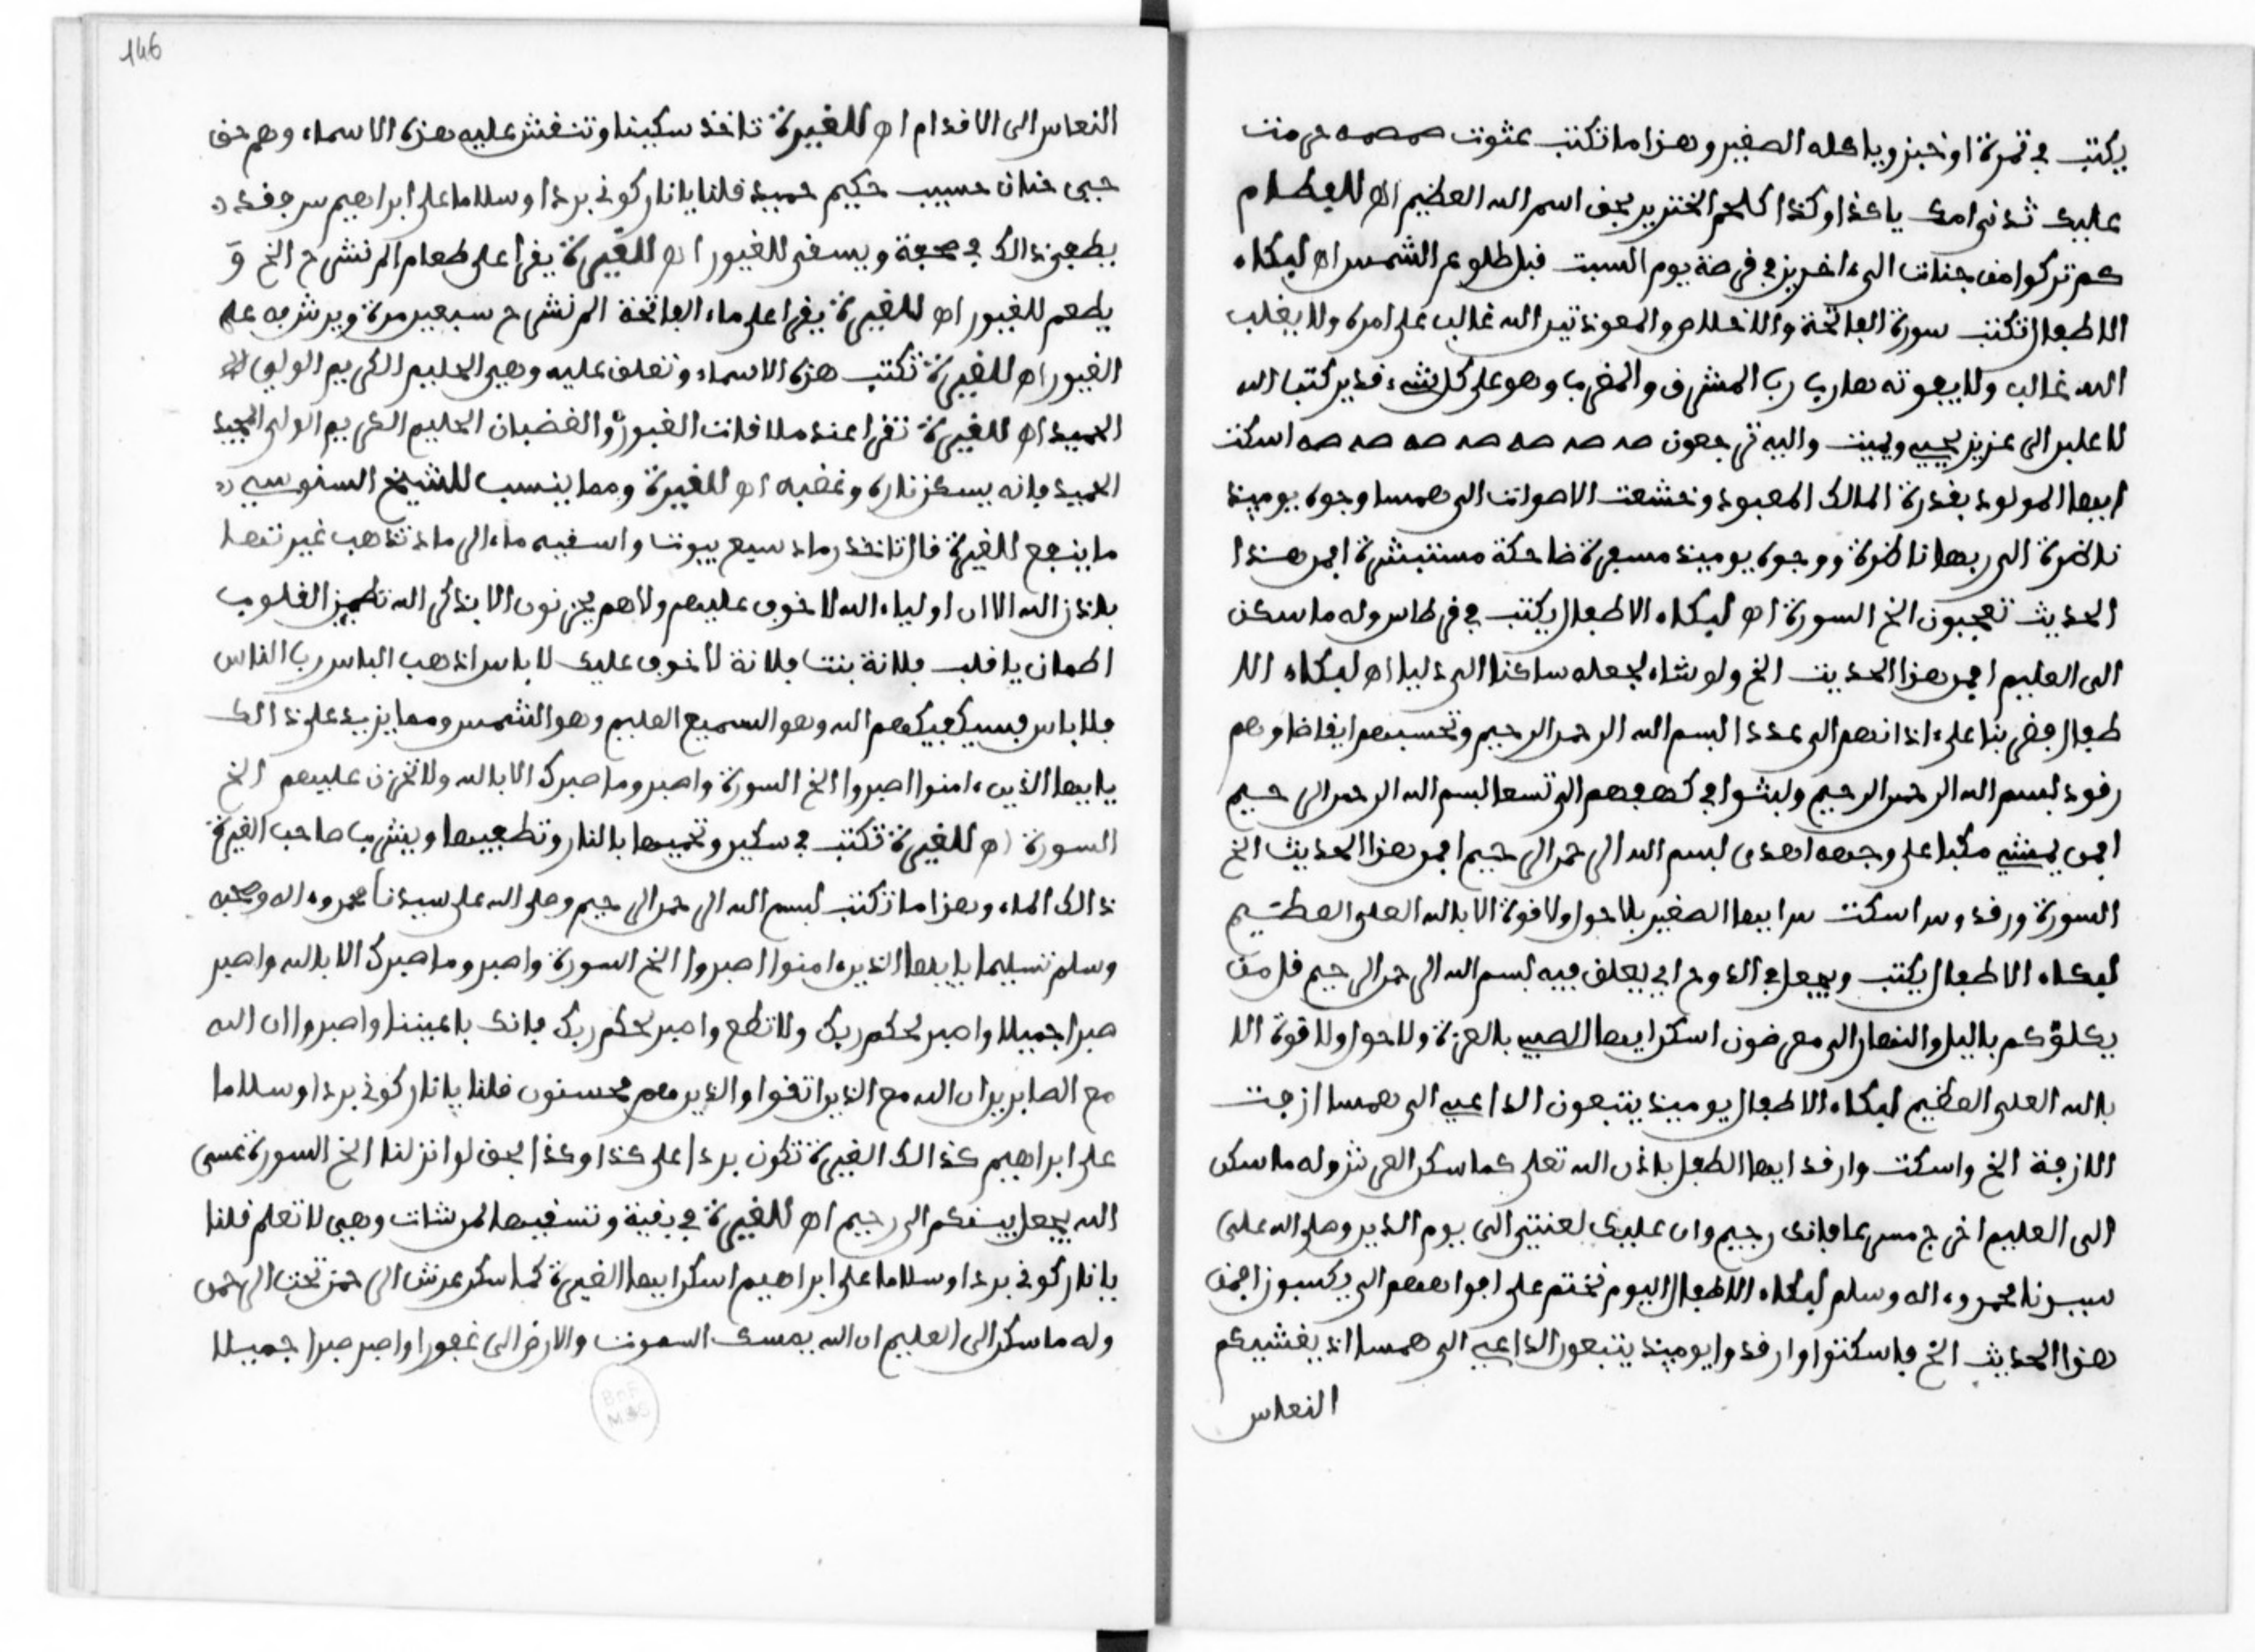 يكتب في تمرة او خبز وياكله الصغير وهذا ما تكتب عثوت صمصمه حرمت
عليك ثدي امك يا كذا وكذا كلحم الخنزير بحق اسم الله العظيم اهـ للبطام
كم تركوا من جنات الى ءاخرين في قرصة يوم السبت قبل طلوع الشمس اهـ لبكاء
الاطفال تكتب سورة الفاتحة والاخلاص والمعوذتين الله غالب على امره ولا يغلب
الله غالب ولا يفوته هارب رب المشرق والمغرب وهو على كل شيء قدير كتب الله
لاغلبن الى عزيز يحيي ويميت واليه ترجعون صه صه صه صه صه صه صه اسكت
ايها المولود بقدرة المالك المعبود وخشعت الاصوات الى همسا وجوه يوميذ
ناضرة الى ربها ناظرة ووجوه يوميذ مسفرة ضاحكة مستبشرة افمن هذا
الحديث تعجبون الخ السورة اهـ لبكاء الاطفال يكتب في قرطاس وله ما سكن
الى العليم افمن هذا الحديث الخ ولو شاء لجعله ساكنا الى دليلا اهـ لبكاء الا
طفال فضربنا على ءاذانهم الى عددا بسم الله الرحمن الرحيم وتحسبهم ايقاضا وهم
رقود بسم الله الرحمن الرحيم ولبثوا في كهفهم الى تسعا بسم الله الرحمن الرحيم
افمن يمشي مكبا على وجهه اهدى بسم الله الرحمن الرحيم افمن هذا الحديث الخ
السورة ورقد واسكت ايها الصغير بلا حول ولا قوة الا بالله العلي العظيم
لبكاء الاطفال يكتب ويجعل في الدوح الي يعلق فيه بسم الله الرحمن الرحيم قل من
يكلؤكم بالليل والنهار الى معرضون اسكن ايها الصبي بالعزة ولا حول ولا قوة الا
بالله العلي العظيم لبكاء الاطفال يوميذ يتبعون الداعي الى همسا ازفت
الازفة الخ واسكت وارقد ايها الطفل باذن الله تعلى كما سكن العرش وله ما سكن
الى العليم اخرج منها فانك رجيم وان عليك لعنتي الى يوم الدين وصلى الله على
سيدنا محمد وءاله وسلم لبكاء الاطفال اليوم نختم على افواههم الى يكسبون افمن
هذا الحديث الخ فاسكتوا وارقدوا يوميذ يتبعون الداعي الى همسا اذ يغشيكم
النعاس
146
النعاس الى الاقدام اهـ للغيرة تاخذ سكينا وتنقش عليه هذه الاسماء وهم حق
حي حنان حسيب حكيم حميد قلنا يا نار كوني بردا وسلاما على ابراهيم
يطفي ذالك في صحفة ويسقى للغيور اهـ للغيرة يقرا على طعام الم نشرح الخ و
يطعم للغيور اهـ للغيرة يقرا على ماء الفاتحة الم نشرح سبعين مرة ويرش به على
الغيور اهـ للغيرة تكتب هذه الاسماء وتعلق عليه وهي الحليم الكريم الولي
الحميد اهـ للغيرة تقرا عند ملاقات الغيور والغضبان الحليم الكريم الولي المجيد
الحميد فانه يسكن ناره وغضبه اهـ للغيرة ومما ينسب للشيخ السنوسي
ما ينفع للغيرة قال تاخذ رماد سبع بيوت واسقيه ماء الرماد تذهب غيرتها
باذن الله الا ان اولياء الله لا خوف عليهم ولا هم يحزنون الا بذكر الله تطمين القلوب
اطمان يا قلب فلانة بنت فلانة لا خوف عليك لا باس اذهب الباس رب الناس
فلا باس فسيكفيكهم الله وهو السميع العليم وهو الشمس ومما يزيد على ذالك
يا ايها الذين ءامنوا اصبروا الخ السورة واصبر وما صبرك الا بالله ولا تحزن عليهم الخ
السورة اهـ للغيرة تكتب في سكين وتحميها بالنار وتطفيها ويشرب صاحب الغيرة
ذالك الماء وهذا ما تكتب بسم الله الرحمن الرحيم وصلى الله على سيدنا محمد وءاله وصحبه
وسلم تسليما يا ايها الذين ءامنوا اصبروا الخ السورة واصبر وما صبرك الا بالله واصبر
صبرا جميلا واصبر لحكم ربك ولا تطع واصبر لحكم ربك فانك باعيننا واصبروا ان الله
مع الصابرين ان الله مع الذين اتقوا والذين هم محسنون قلنا يا نار كوني بردا وسلاما
على ابراهيم كذالك الغيرة تكون بردا على كذا وكذا بحق لو انزلنا الخ السورة عسى
الله يجعل بينكم الى رحيم اهـ للغيرة في بقية وتسقيها لمن شات وهي لا تعلم قلنا
يا نار كوني بردا وسلاما على ابراهيم اسكن ايها الغيرة كما سكن عرش الرحمن تحت الرحمن
وله ما سكن الى العليم ان الله يمسك السموت والارض الى غفورا واصبر صبرا جميلا